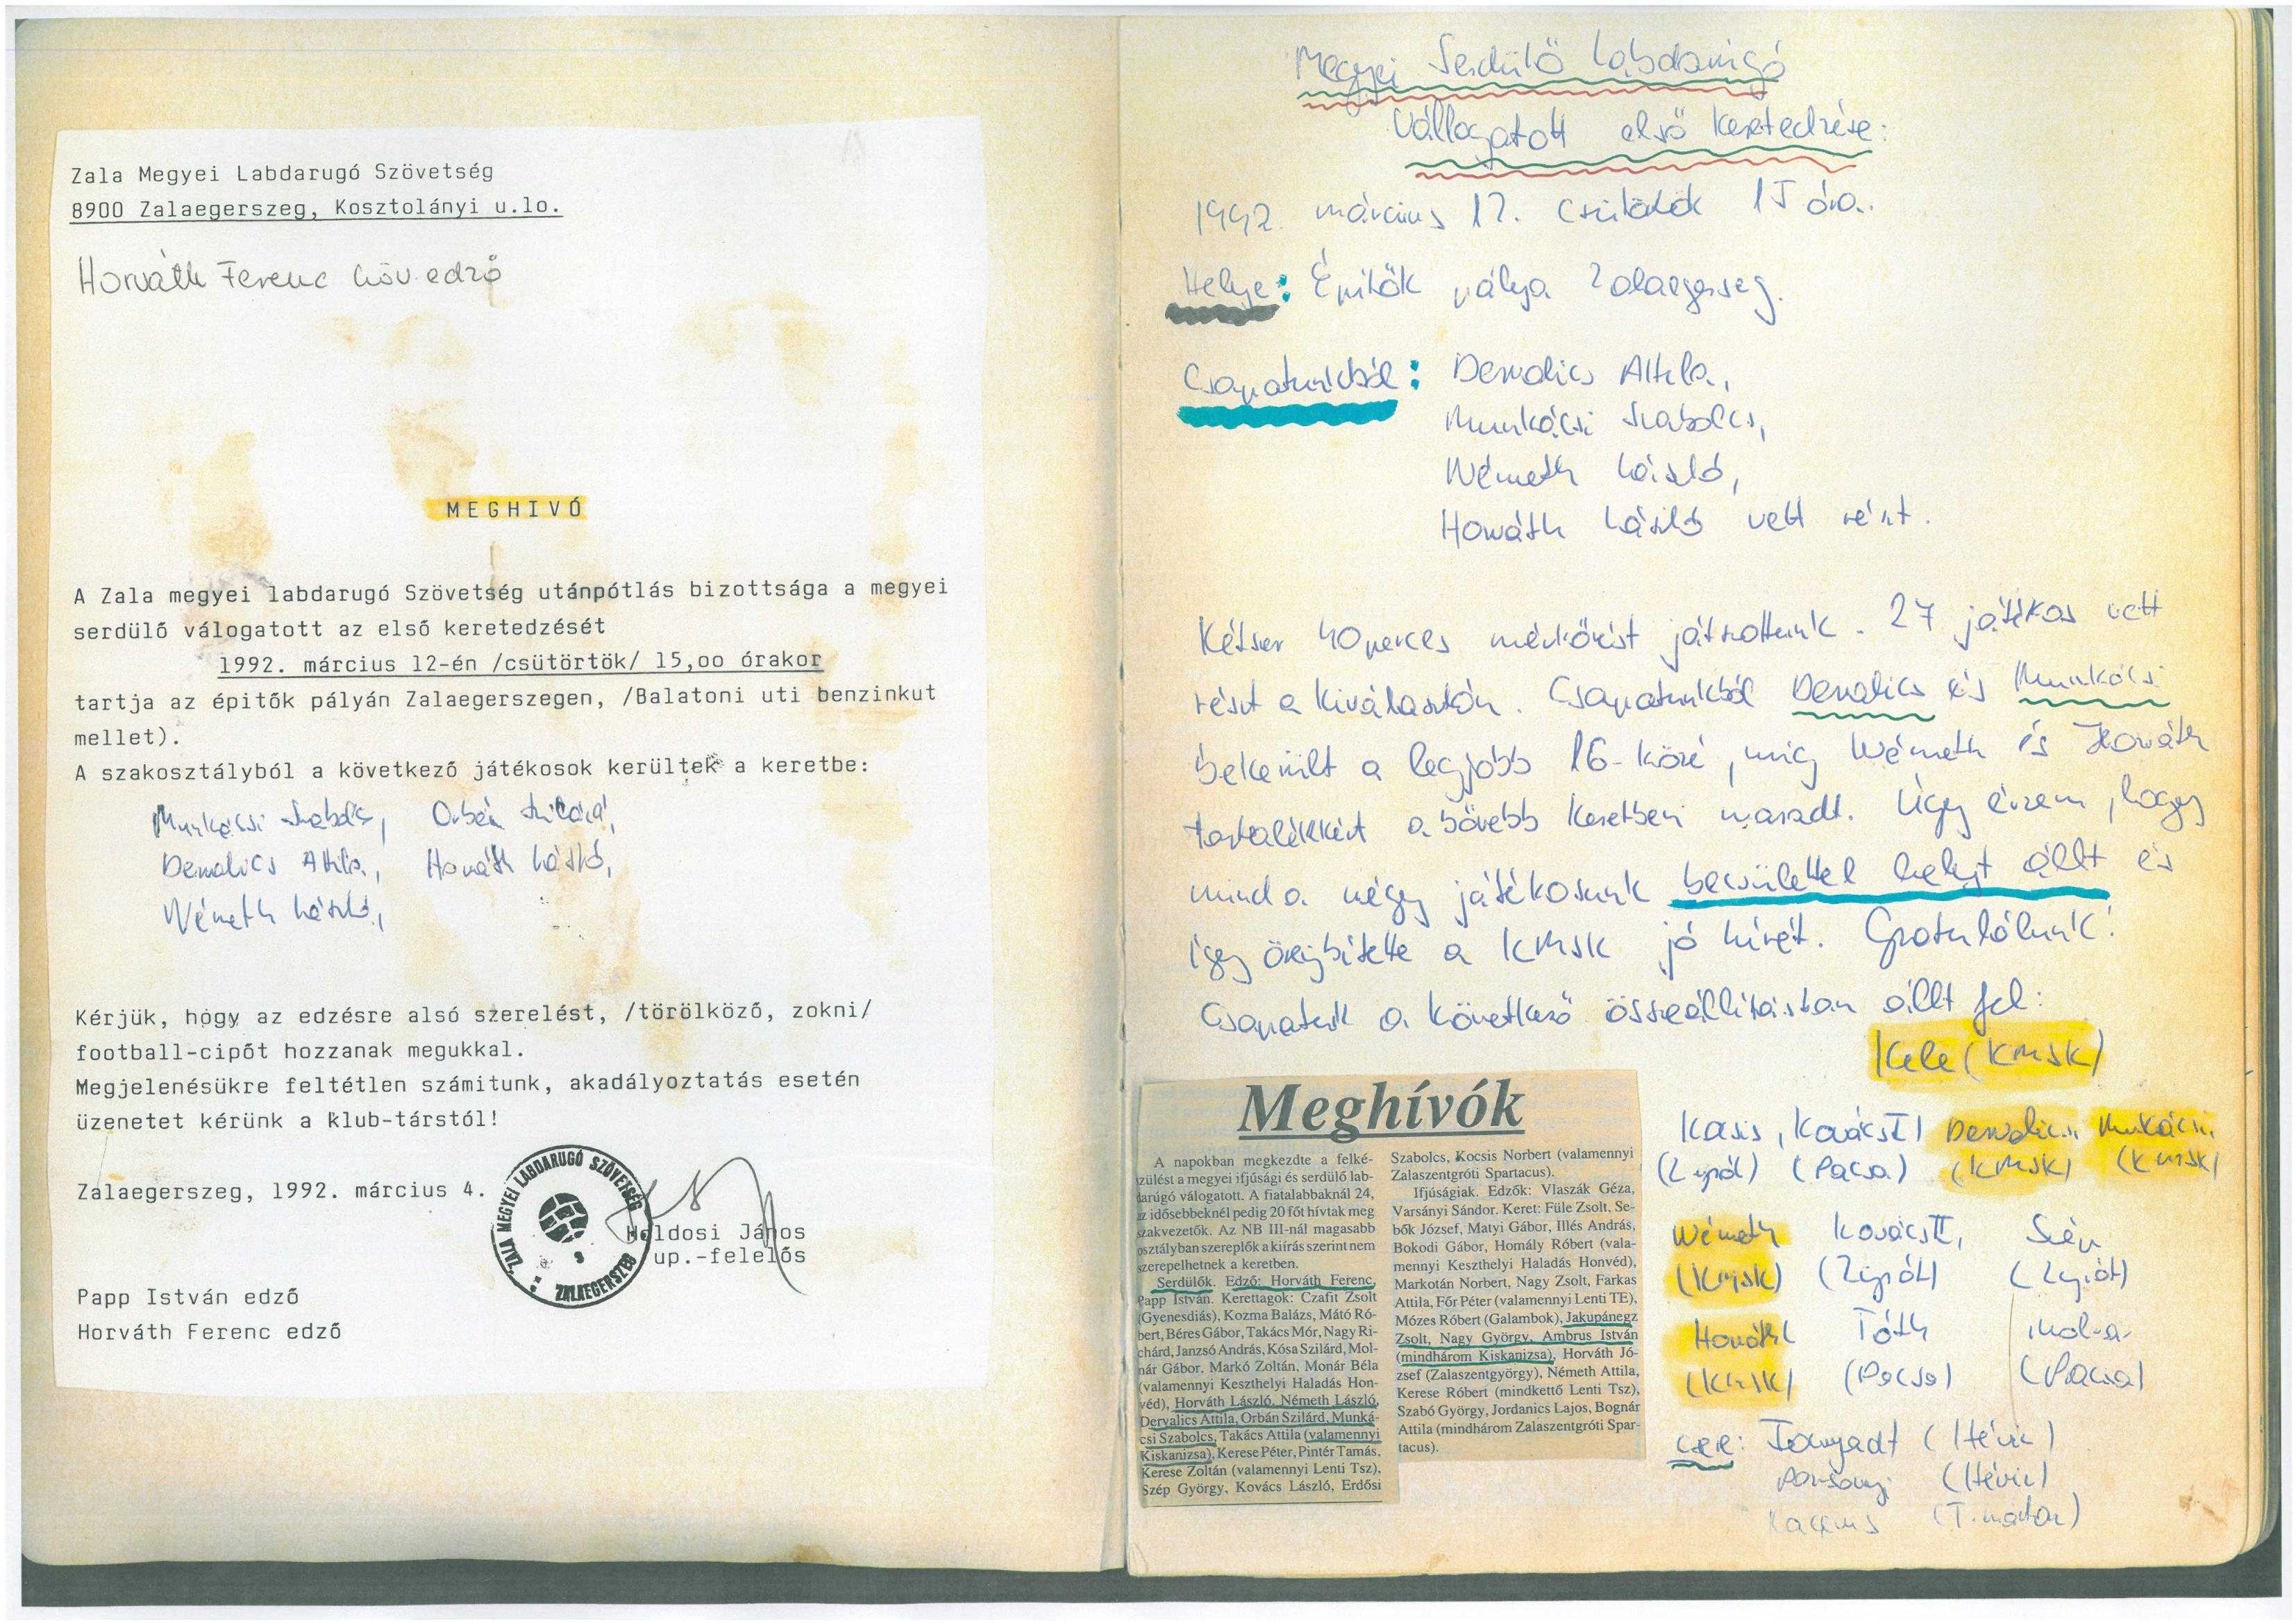 Zala Megyei Labdarugó Szövetség
8900 Zalaegerszeg, Kosztolányi u.lo.
Horváth Ferenc edző
MEGHIVÓ
A Zala megyei labdarugó Szövetség utánpótlás bizottsága a megyei
serdülő válogatott az első keretedzését
1992. március 12-én /csütörtök/ 15,oo órakor
tartja az épitők pályán Zalaegerszegen, /Balatoni uti benzinkut
mellet).
A szakosztályból a következő játékosok kerültek a keretbe:
Munkácsi Szabolcs, Orbán Szilárd,
Dervalics Attila, Horváth László,
Németh László,
Kérjük, hogy az edzésre alsó szerelést, /törölköző, zokni/
football-cipőt hozzanak megukkal.
Megjelenésükre feltétlen számitunk, akadályoztatás esetén
üzenetet kérünk a klub-társtól!
Zalaegerszeg, 1992. március 4.
ZALA MEGYEI LABDARUGÓ SZÖVETSÉG
ZALAEGERSZEG
Holdosi János
up.-felelős
Papp István edző
Horváth Ferenc edző
Megyei Serdülő Labdarúgó
Válogatott első keretedzése:
1992. március 12. Csütörtök 15 óra.
Helye: Építők pálya Zalaegerszeg.
Csapatunkból: Dervalics Attila,
Munkácsi Szabolcs,
Németh László,
Horváth László vett részt.
Kétszer 40 perces mérkőzést játszottunk. 27 játékos vett
részt a kiválasztón. Csapatunkból Dervalics és Munkácsi
bekerült a legjobb 16-közé, míg Németh és Horváth
tartalékként a bővebb keretben maradt. Úgy érzem, hogy
mind a négy játékosunk becsülettel helyt állt és
így öregbítette a KMSK jó hírét. Gratulálunk!
Csapatunk a következő összeállításban állt fel:
Kele (KMSK)
Kocsis, Kovács I Dervalics, Munkácsi,
(Zgrót) (Pacsa) (KMSK) (KMSK)
Németh Kovács II, Szép
(KMSK) (Zgrót) (Zgrót)
Horváth Tóth
(KMSK) (Pacsa) (Pacsa)
csere: (Hévíz)
(Hévíz)
Meghívók
A napokban megkezdte a felké-
szülést a megyei ifjúsági és serdülő lab-
darúgó válogatott. A fiatalabbaknál 24,
az idősebbeknél pedig 20 főt hívtak meg
szakvezetők. Az NB III-nál magasabb
osztályban szereplők a kiírás szerint nem
szerepelhetnek a keretben.
Serdülők. Edző: Horváth Ferenc,
Papp István. Kerettagok: Czafit Zsolt
(Gyenesdiás), Kozma Balázs, Mátó Ró-
bert, Béres Gábor, Takács Mór, Nagy Ri-
chárd, Janzsó András, Kósa Szilárd, Mol-
nár Gábor. Markó Zoltán, Monár Béla
(valamennyi Keszthelyi Haladás Hon-
véd), Horváth László, Németh László,
Dervalics Attila, Orbán Szilárd, Munká-
csi Szabolcs, Takács Attila (valamennyi
Kiskanizsa), Kerese Péter, Pintér Tamás,
Kerese Zoltán (valamennyi Lenti Tsz),
Szép György, Kovács László, Erdősi
Szabolcs, Kocsis Norbert (valamennyi
Zalaszentgróti Spartacus).
Ifjúságiak. Edzők: Vlaszák Géza,
Varsányi Sándor. Keret: Füle Zsolt, Se-
bők József, Matyi Gábor, Illés András,
Bokodi Gábor, Homály Róbert (vala-
mennyi Keszthelyi Haladás Honvéd),
Markotán Norbert, Nagy Zsolt, Farkas
Attila, Főr Péter (valamennyi Lenti TE),
Mózes Róbert (Galambok), Jakupánegz
Zsolt, Nagy György, Ambrus István
(mindhárom Kiskanizsa), Horváth Jó-
zsef (Zalaszentgyörgy), Németh Attila,
Kerese Róbert (mindkettő Lenti Tsz),
Szabó György, Jordanics Lajos, Bognár
Attila (mindhárom Zalaszentgróti Spar-
tacus).